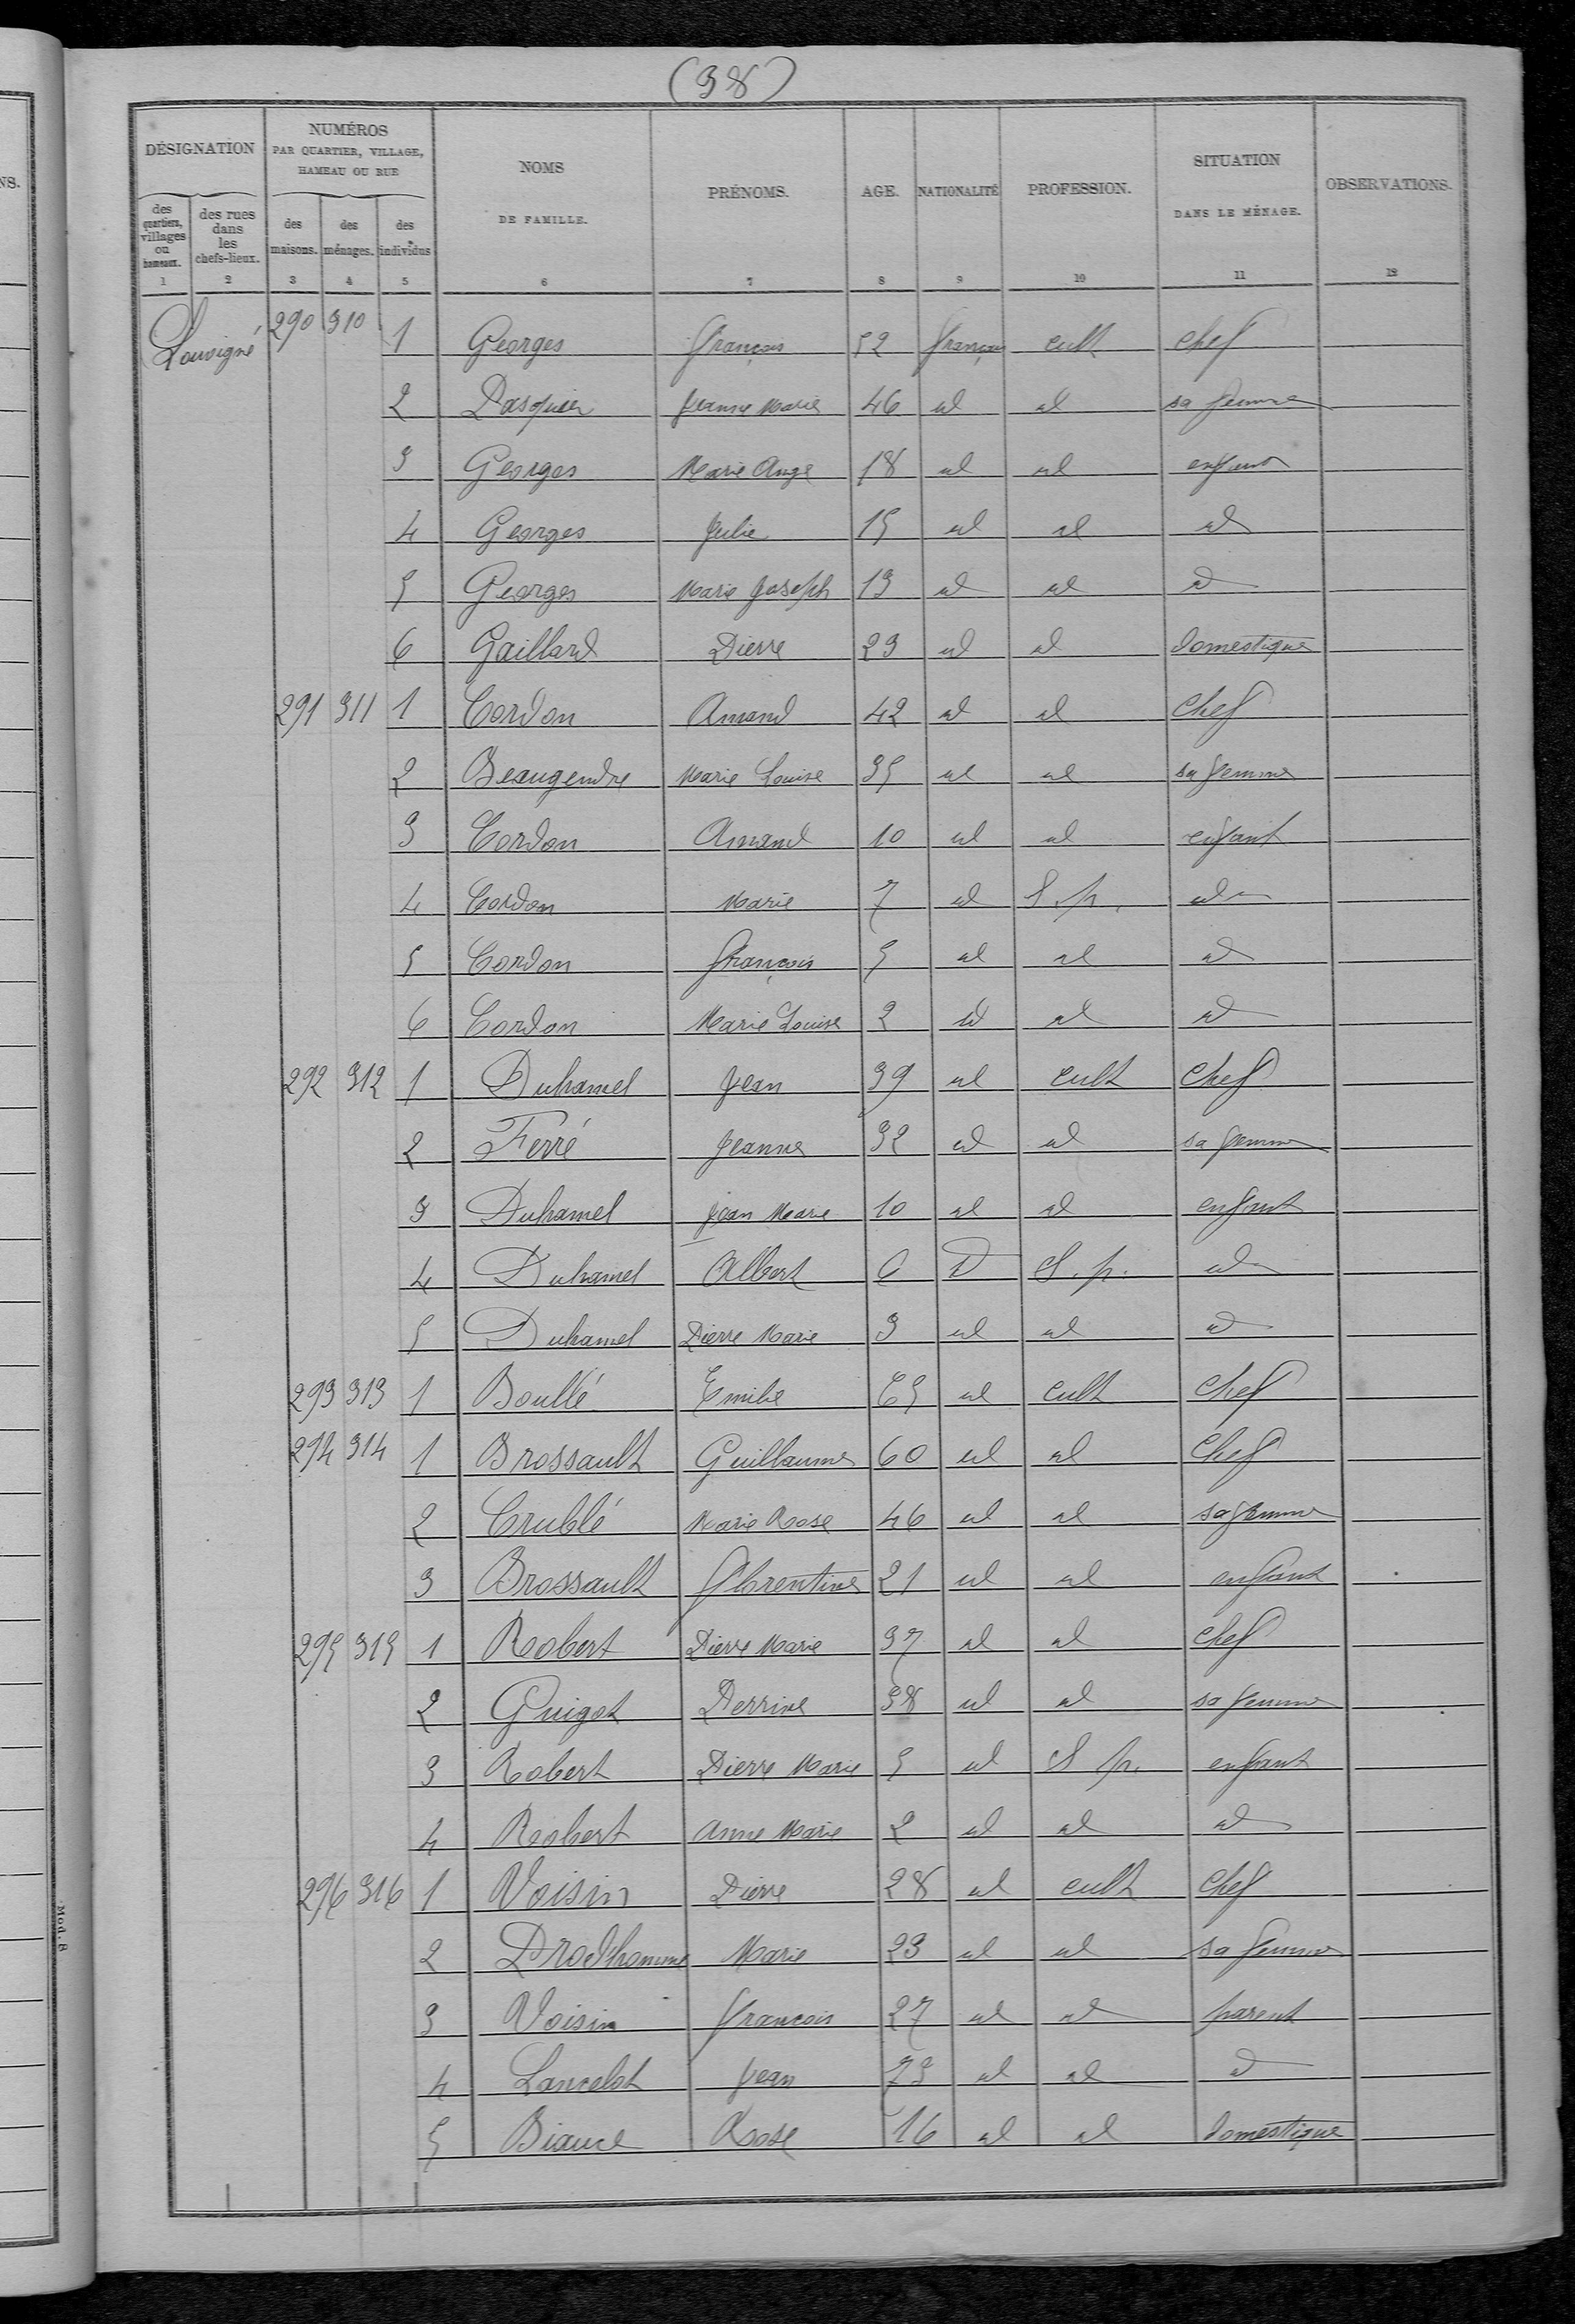 (38)
NS.
DÉSIGNATION
NUMÉROS
PAR QUARTIER, VILLAGE,
HAMEAU OU RUE
NOMS
DE FAMILLE.
PRÉNOMS.
AGE.
NATIONALITÉ
PROFESSION.
SITUATION
DANS LE MÉNAGE.
OBSERVATIONS.
des quartiers, villages ou hameaux.
des rues dans les chefs-lieux.
des maisons.
des ménages.
des individus
1 2 3 4 5 6 7 8 9 10 11 12
Louvigné 290 310 1 Georges François 52 Français cult chef
2 Pasquier Jeanne Marie 46 id id sa femme
3 Georges Marie Ange 18 id id enfant
4 Georges Julie 15 id id id
5 Georges Marie Joseph 13 id id id
6 Gaillard Pierre 23 id id domestique
291 311 1 Cordon Amand 42 id id Chef
2 Beaugendre Marie Louise 35 id id sa femme
3 Cordon Amand 10 id id enfant
4 Cordon Marie 7 id S. p. id
5 Cordon François 5 id id id
6 Cordon Marie Louise 2 id id id
292 312 1 Duhamel Jean 39 id cult Chef
2 Ferré Jeanne 32 id id sa femme
3 Duhamel Jean Marie 10 id id enfant
4 Duhamel Albert 6 id S. p. id
5 Duhamel Pierre Marie 3 id id id
293 313 1 Boullé Emilie 65 id cult Chef
294 314 1 Brossault Guillaume 60 id id Chef
2 Crublé Marie Rose 46 id id sa femme
3 Brossault Florentine 21 id id enfant
295 315 1 Robert Pierre Marie 37 id id Chef
2 Guigot Perrine 38 id id sa femme
3 Robert Pierre Marie 5 id S p. enfant
4 Robert Anne Marie 2 id id id
296 316 1 Voisin Pierre 28 id cult Chef
2 Prodhomme Marie 23 id id sa femme
3 Voisin François 27 id id parent
4 Lancelot Jean 73 id id id
5 Biance Rose 16 id id domestique
Mod. B